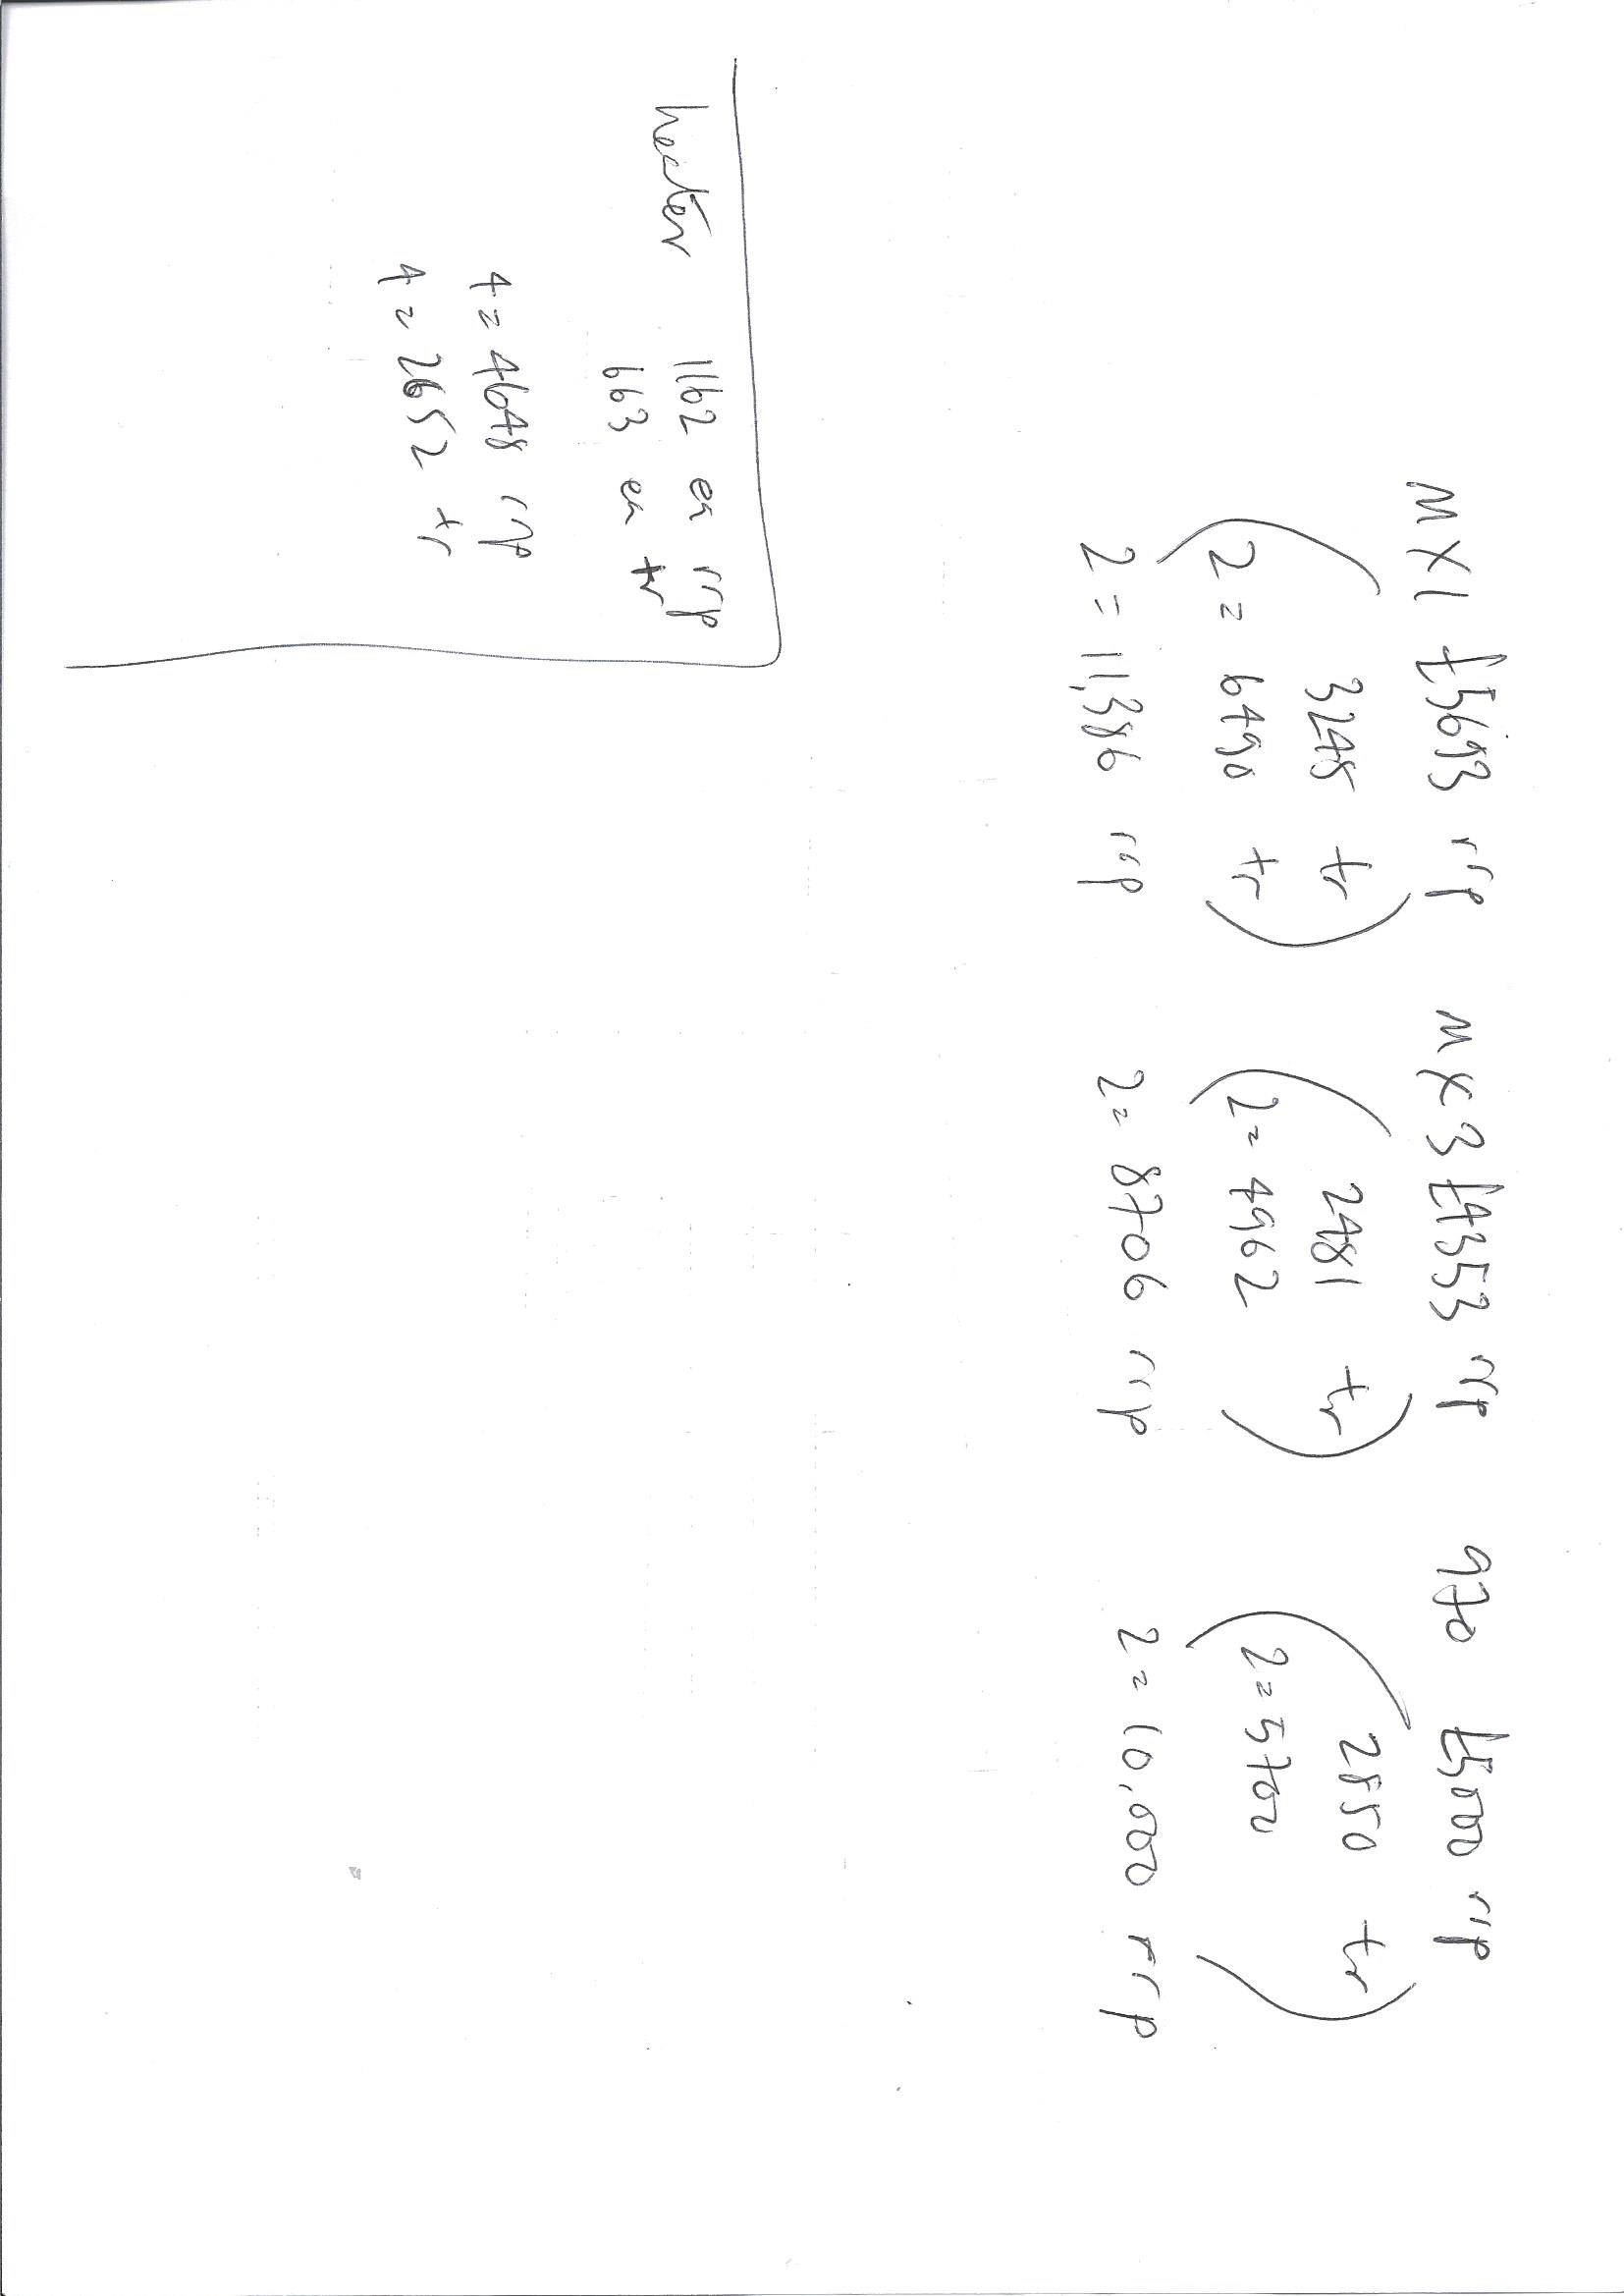 MX1 £5693 rrp
3245 tr
2 = 6490 tr
2 = 11,386 rrp
MX3 £4353 rrp
2481 tr
2 = 4962
2 = 8706 rrp
970 £5000 rrp
2850 tr
2 = 5700
2 = 10,000 rrp
heater 1162 ea rrp
663 ea tr
4 = 4648 rrp
4 = 2652 tr